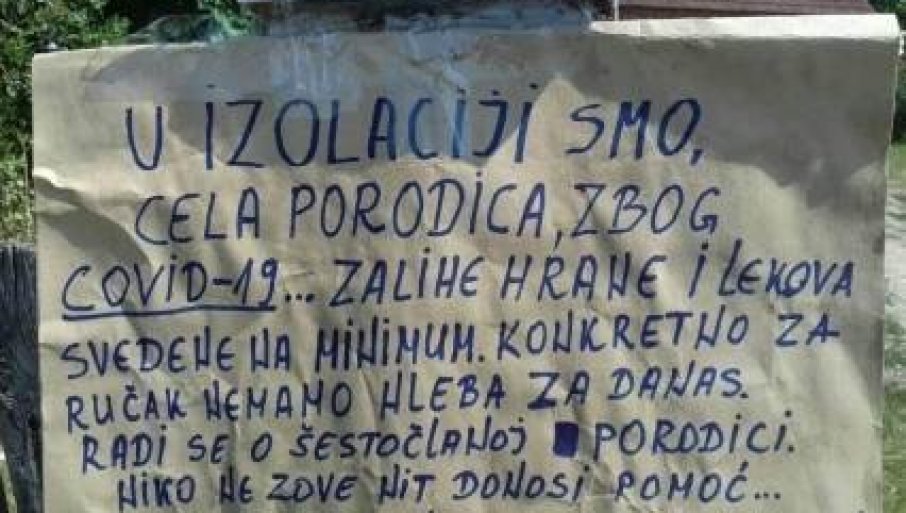 U IZOLACIJI SMO,
CELA PORODICA, ZBOG
COVID-19... ZALIHE HRANE I LEKOVA
SVEDENE NA MINIMUM. KONKRETNO ZA
RUČAK NEMAMO HLEBA ZA DANAS.
RADI SE O ŠESTOČLANOJ PORODICI.
NIKO NE ZOVE NIT DONOSI POMOĆ...